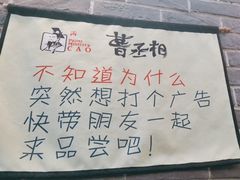 PRIME MINISTER
CAO
曹丞相
不知道为什么
突然想打个广告
快带朋友一起
来品尝吧！